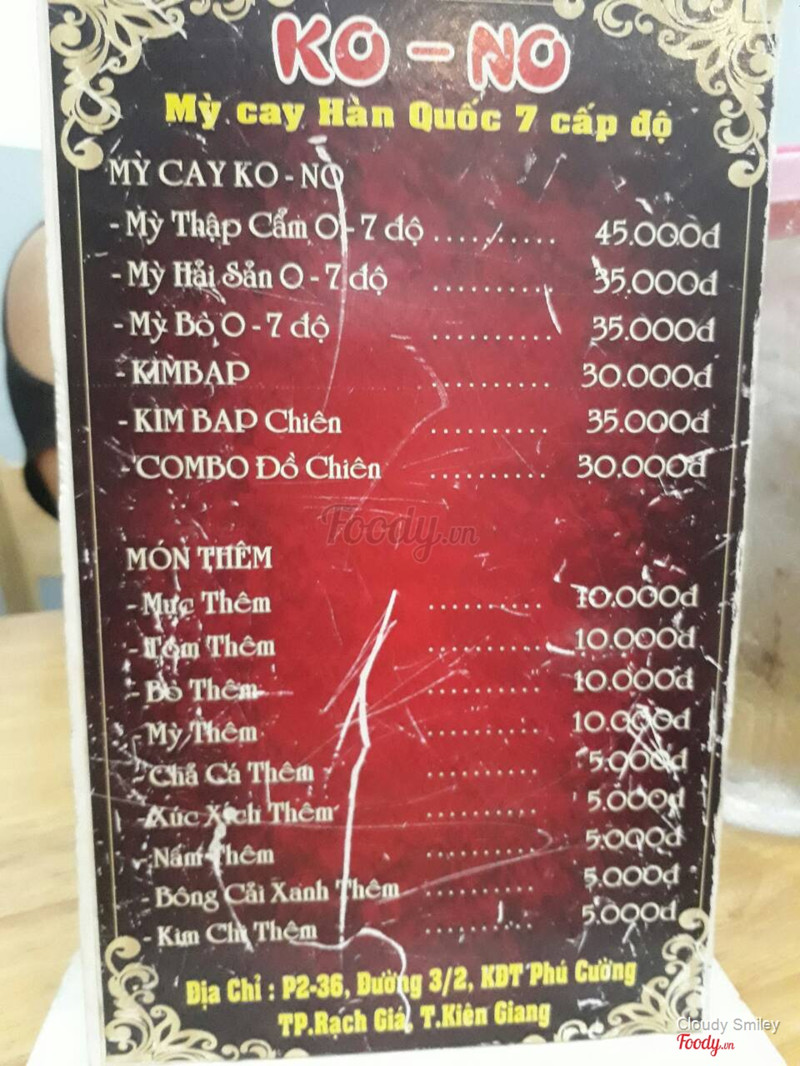 KO - NO
Mỳ cay Hàn Quốc 7 cấp độ
MỲ CAY KO - NO
- Mỳ Thập Cẩm 0 - 7 độ .......... 45.000đ
- Mỳ Hải Sản 0 - 7 độ .......... 35.000đ
- Mỳ Bò 0 - 7 độ .......... 35.000đ
- KIMBAP .......... 30.000đ
- KIM BAP Chiên .......... 35.000đ
- COMBO Đồ Chiên .......... 30.000đ
Foody.vn
MÓN THÊM
- Mực Thêm .......... 10.000đ
- Tôm Thêm .......... 10.000đ
- Bò Thêm .......... 10.000đ
- Mỳ Thêm .......... 10.000đ
- Chả Cá Thêm .......... 5.000đ
- Xúc Xích Thêm .......... 5.000đ
- Nấm Thêm .......... 5.000đ
- Bông Cải Xanh Thêm .......... 5.000đ
- Kim Chi Thêm .......... 5.000đ
Địa Chỉ : P2-36, Đường 3/2, KĐT Phú Cường
TP.Rạch Giá, T.Kiên Giang
Cloudy Smiley
Foody.vn